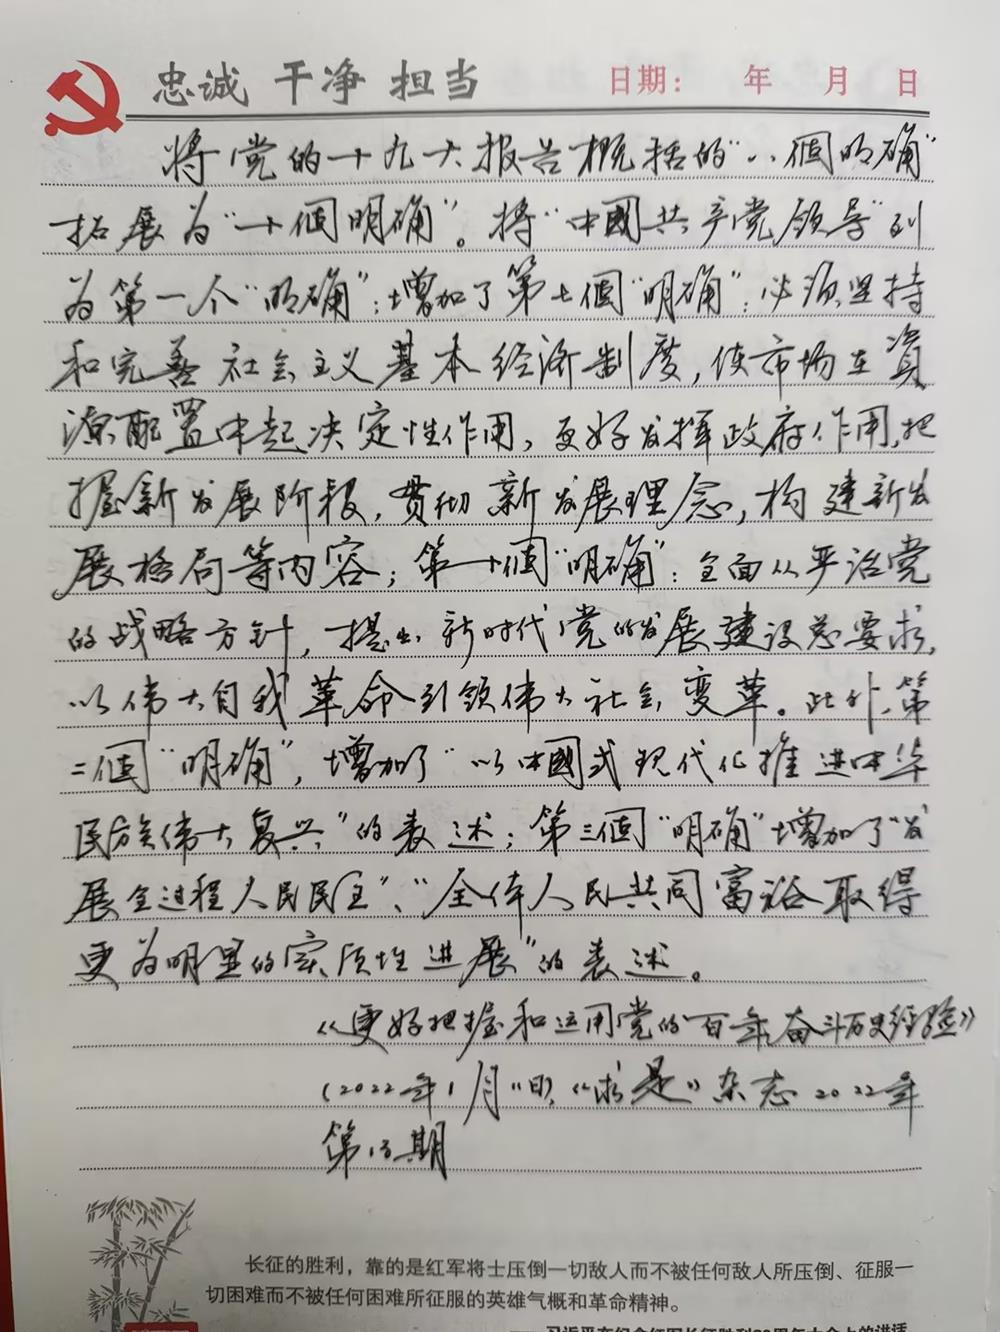 忠诚 干净 担当 日期： 年 月 日
将党的十九大报告概括的“八個明确”
拓展为“十個明确”。将“中國共产党领导”列
为第一个“明确”；增加了第七個“明确”：必须坚持
和完善社会主义基本经济制度，使市场在資
源配置中起决定性作用，更好发挥政府作用，把
握新发展阶段，贯彻新发展理念，构建新发
展格局等内容；第十個“明确”：全面从严治党
的战略方针，提出新时代党的发展建设总要求，
以伟大自我革命引领伟大社会变革。此外，第
二個“明确”，增加了“以中國式现代化推进中华
民族伟大复兴”的表述；第三個“明确”增加了“发
展全过程人民民主”、“全体人民共同富裕取得
更为明显的实质性进展”的表述。
《更好把握和运用党的百年奋斗历史经验》
（2022年1月11日）《求是》杂志2022年
第13期
长征的胜利，靠的是红军将士压倒一切敌人而不被任何敌人所压倒、征服一
切困难而不被任何困难所征服的英雄气概和革命精神。
——习近平在纪念红军长征胜利80周年大会上的讲话